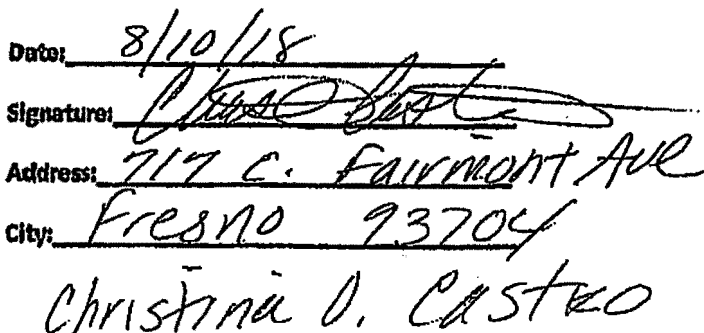 Date: 8/10/18
Signature:
Address: 717 E. Fairmont Ave
City: Fresno 93704
Christina D. Castro